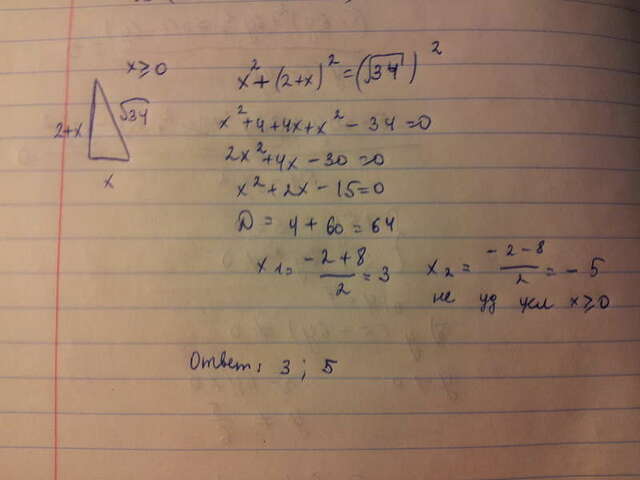 x ≥ 0
2+x
√34
x
x² + (2+x)² = (√34)²
x² + 4 + 4x + x² - 34 = 0
2x² + 4x - 30 = 0
x² + 2x - 15 = 0
D = 4 + 60 = 64
x₁ = (-2+8)/2 = 3
x₂ = (-2-8)/2 = -5
не уд усл x ≥ 0
Ответ: 3 ; 5